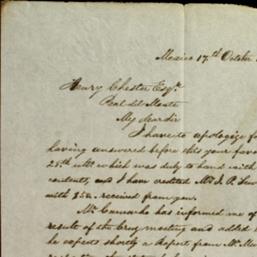 Mexico 17th October
Henry Chester Esqr.
Real del Monte
My dear Sir
I have to apologize for
having answered before this your favor
25th ulto. which was duly to hand with
contents, and I have credited Mr. J. P.
with $ received from you.
Mr. Camacho has informed me of
result of the meeting and added
he expects shortly a Report from Mr.